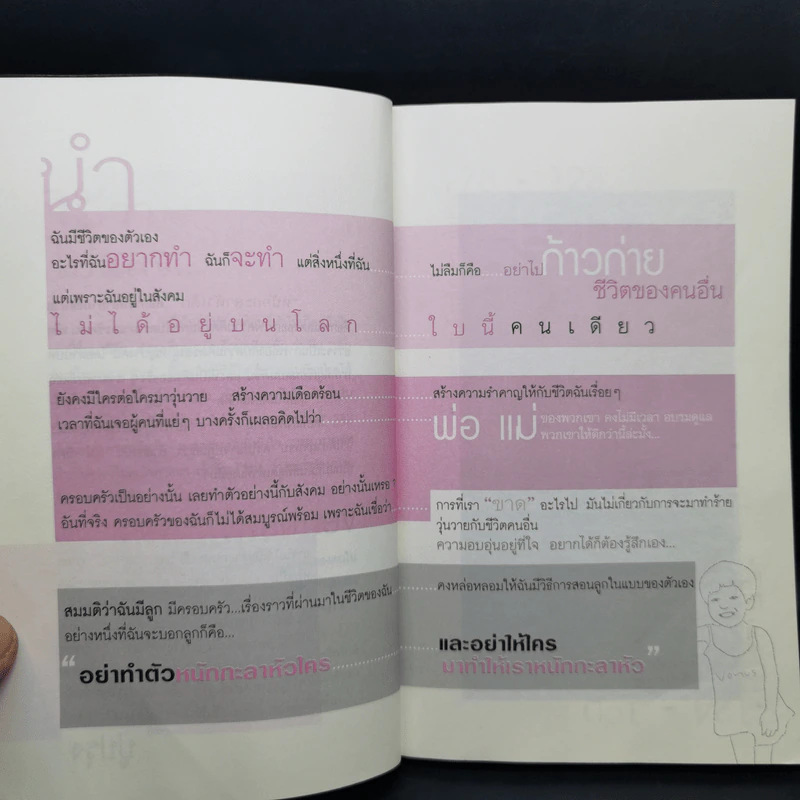 นำ
ฉันมีชีวิตของตัวเอง
อะไรที่ฉันอยากทำ ฉันก็จะทำ แต่สิ่งหนึ่งที่ฉัน
แต่เพราะฉันอยู่ในสังคม
ไม่ได้อยู่บนโลก
ยังคงมีใครต่อใครมาวุ่นวาย สร้างความเดือดร้อน
เวลาที่ฉันเจอผู้คนที่แย่ๆ บางครั้งก็เผลอคิดไปว่า
ครอบครัวเป็นอย่างนั้น เลยทำตัวอย่างนี้กับสังคม อย่างนั้นเหรอ
อันที่จริง ครอบครัวของฉันก็ไม่ได้สมบูรณ์พร้อม เพราะฉันเชื่อว่า
สมมติว่าฉันมีลูก มีครอบครัว...เรื่องราวที่ผ่านมาในชีวิตของฉัน
อย่างหนึ่งที่ฉันจะบอกลูกก็คือ...
“อย่าทำตัวหนักกะลาหัวใคร
ไม่ลืมก็คือ อย่าไปก้าวก่าย
ชีวิตของคนอื่น
ใบนี้คนเดียว
สร้างความรำคาญให้กับชีวิตฉันเรื่อยๆ
พ่อ แม่ ของพวกเขา คงไม่มีเวลา อบรมดูแล
พวกเขาให้ดีกว่านี้ล่ะมั้ง...
การที่เรา “ขาด” อะไรไป มันไม่เกี่ยวกับการจะมาทำร้าย
วุ่นวายกับชีวิตคนอื่น
ความอบอุ่นอยู่ที่ใจ อยากได้ก็ต้องรู้สึกเอง...
คงหล่อหลอมให้ฉันมีวิธีการสอนลูกในแบบของตัวเอง
และอย่าให้ใคร
มาทำให้เราหนักกะลาหัว”